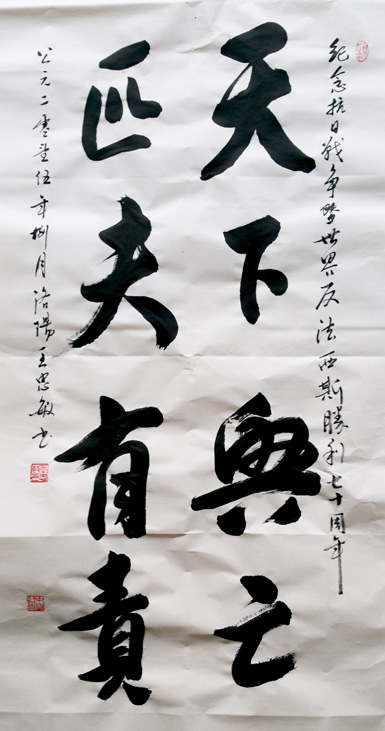 紀念抗日戰争暨世界反法西斯勝利七十周年
天下興亡
匹夫有責
公元二零壹伍年捌月洛陽王忠敏书